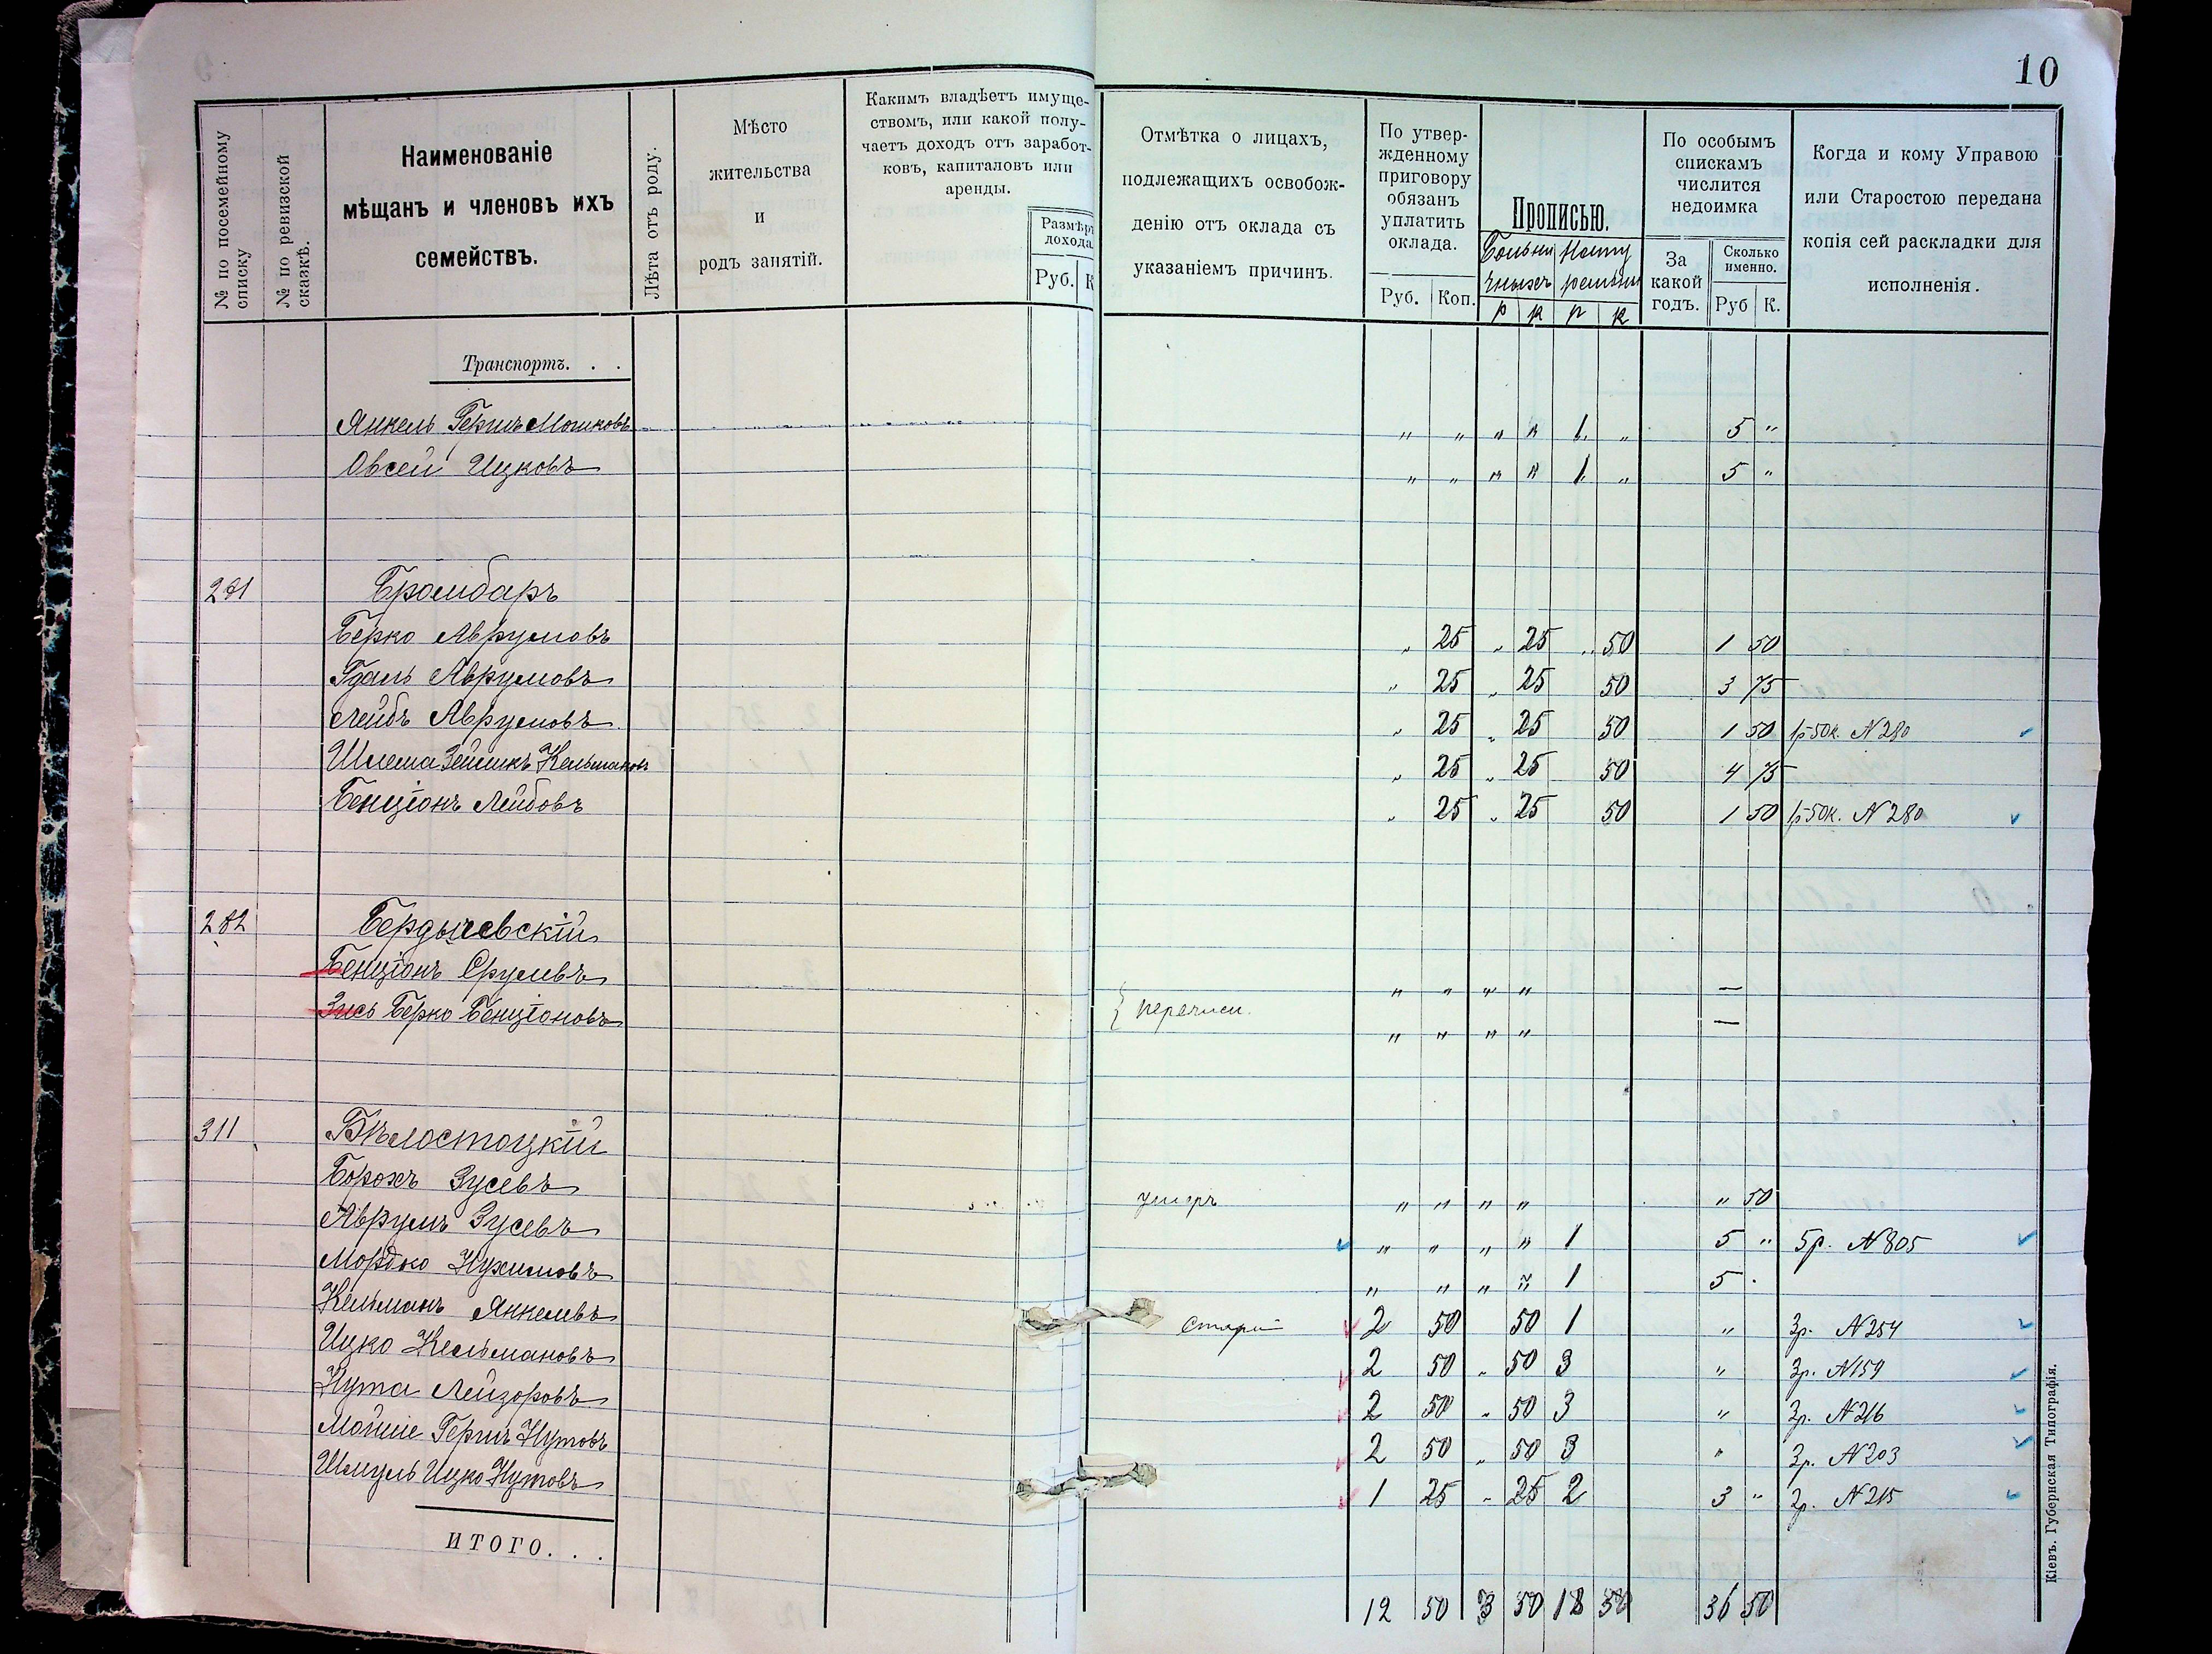 10
№ по посемейному списку
№ по ревизской сказкѣ.
Наименованіе
мѣщанъ и членовъ ихъ
семействъ.
Лѣта отъ роду.
Мѣсто
жительства
и
родъ занятій.
Какимъ владѣетъ имуще-
ствомъ, или какой полу-
чаетъ доходъ отъ заработ-
ковъ, капиталовъ или
аренды.
Размѣръ
дохода.
Руб. К
Отмѣтка о лицахъ,
подлежащихъ освобож-
денію отъ оклада съ
указаніемъ причинъ.
По утвер-
жденному
приговору
обязанъ
уплатить
оклада.
Руб. Коп.
Прописью.
р к р к
По особымъ
спискамъ
числится
недоимка
За
какой
годъ.
Сколько
именно.
Руб К.
Когда и кому Управою
или Старостою передана
копія сей раскладки для
исполненія.
Транспортъ. . .
Янкель Гершъ Мошковъ " " " " 1 " 5 "
Овсей Ицковъ " " " " 1 " 5 "
281 Бромбаръ
Берко Аврумовъ " 25 " 25 " 50 1 50
Гдаль Аврумовъ " 25 " 25 50 3 75
Лейбъ Аврумовъ " 25 " 25 50 1 50 1р 50к. N 280
Шлема Зейликъ Кельмановъ " 25 " 25 50 4 75
Бенціонъ Лейбовъ " 25 " 25 50 1 50 1р 50к. N 280
282 Бердычевскій
Бенціонъ Срулевъ " " " " —
Зись Берко Бенціоновъ перечисл. " " " " —
311 Бѣлостоцкій
Борохъ Зусевъ умеръ " " " " " 50
Аврумъ Зусевъ " " " " 1 5 " 5р. N 805
Мордко Нухимовъ " " " " 1 5 "
Кельманъ Янкелевъ старый 2 50 50 1 " 3р. N 254
Ицко Кельмановъ 2 50 " 50 3 " 3р. N 159
Нута Лейзоровъ 2 50 " 50 3 " 3р. N 216
Мойше Гершъ Нутовъ 2 50 " 50 3 " 3р. N 203
Шмуль Ицко Нутовъ 1 25 " 25 2 3 " 2р. N 215
ИТОГО. . .
12 50 3 50 18 50 36 50
Кіевъ. Губернская Типографія.